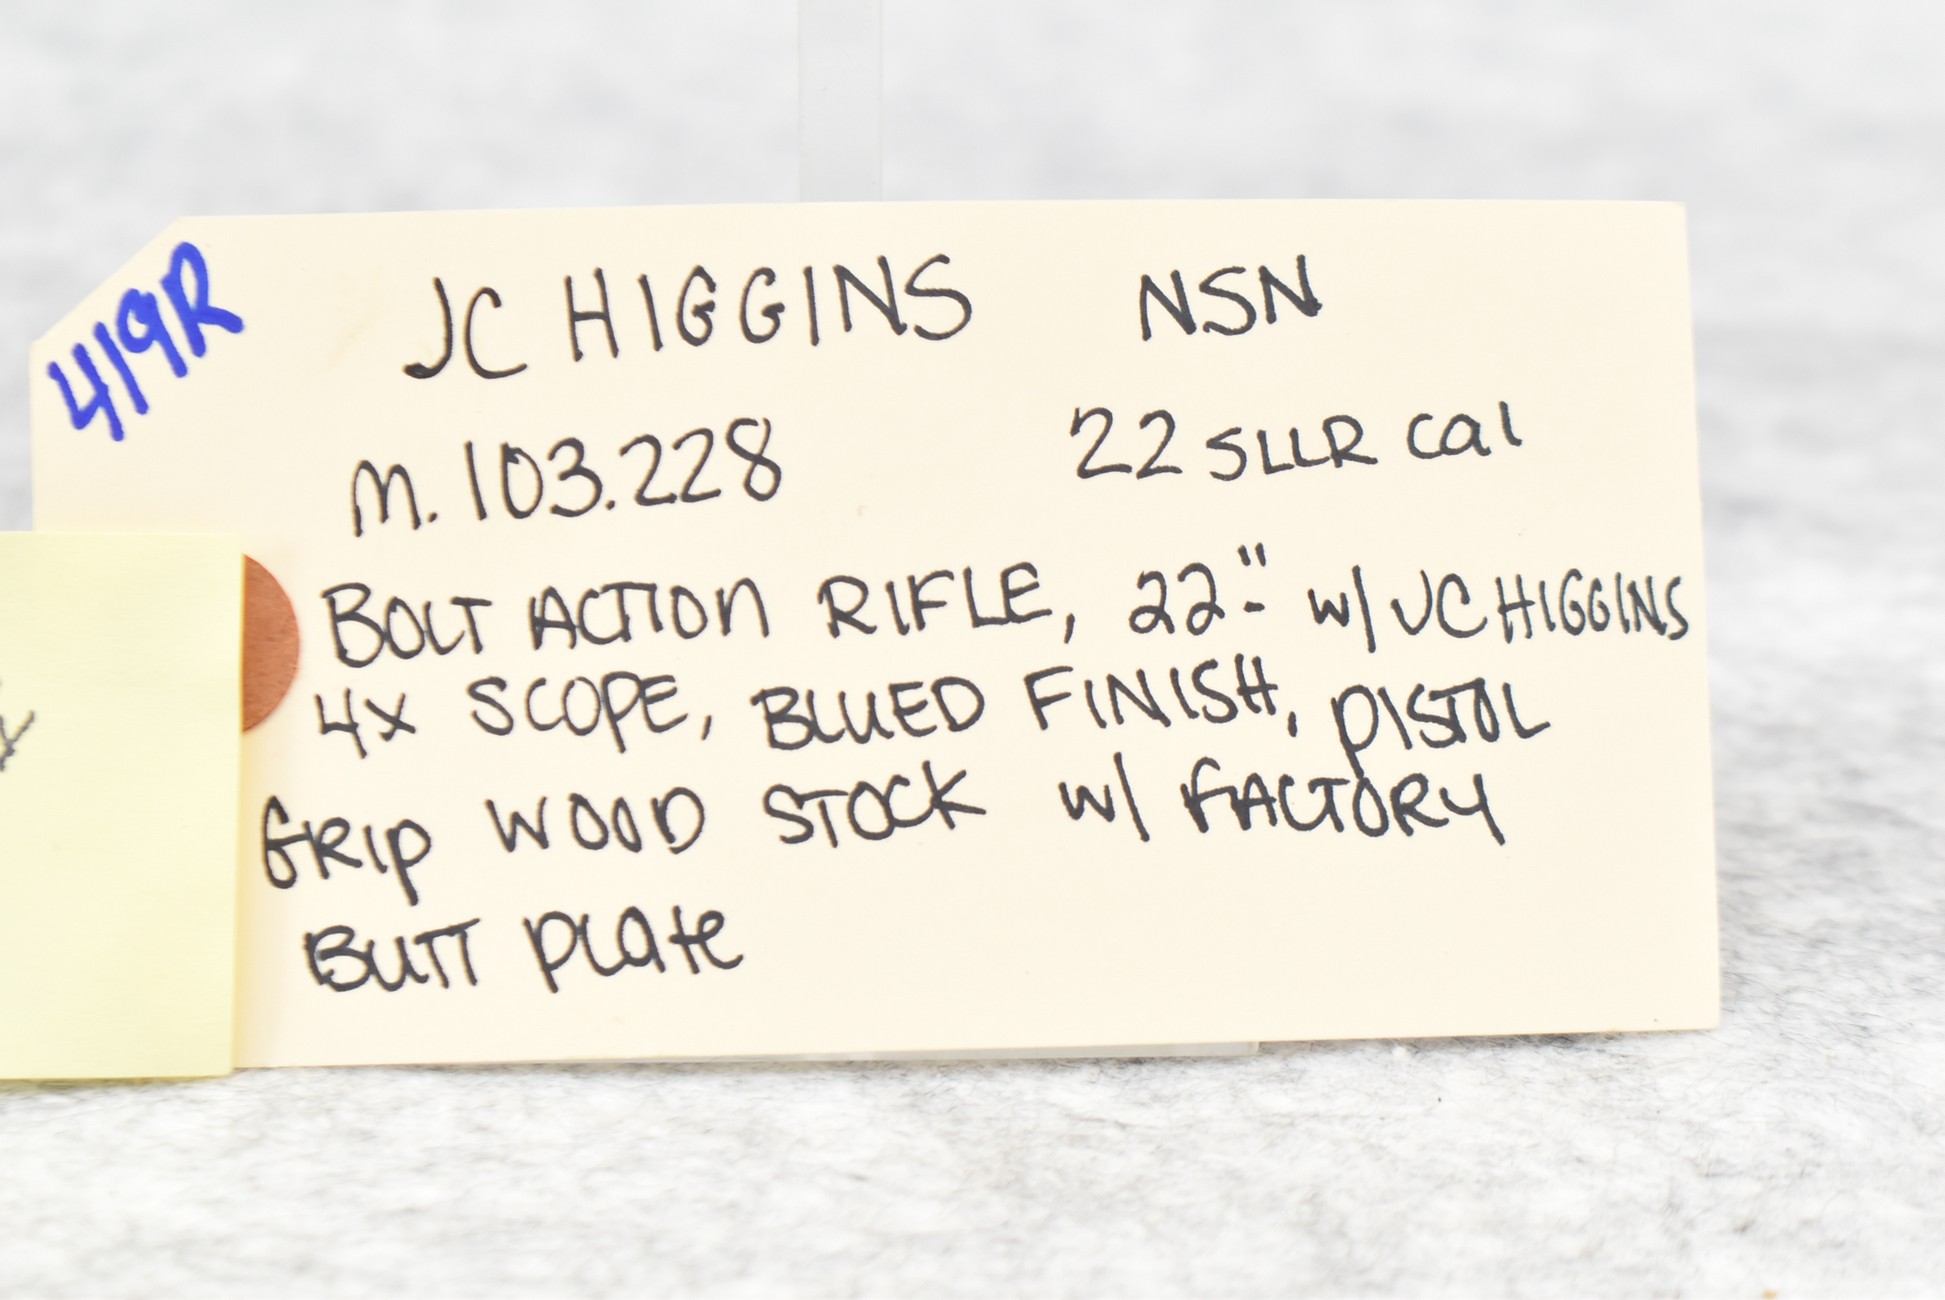 419R
JC HIGGINS NSN
M.103.228 22 SLLR cal
BOLT ACTION RIFLE, 22" w/ JC HIGGINS
4X SCOPE, BLUED FINISH, PISTOL
GRIP WOOD STOCK w/ FACTORY
BUTT Plate